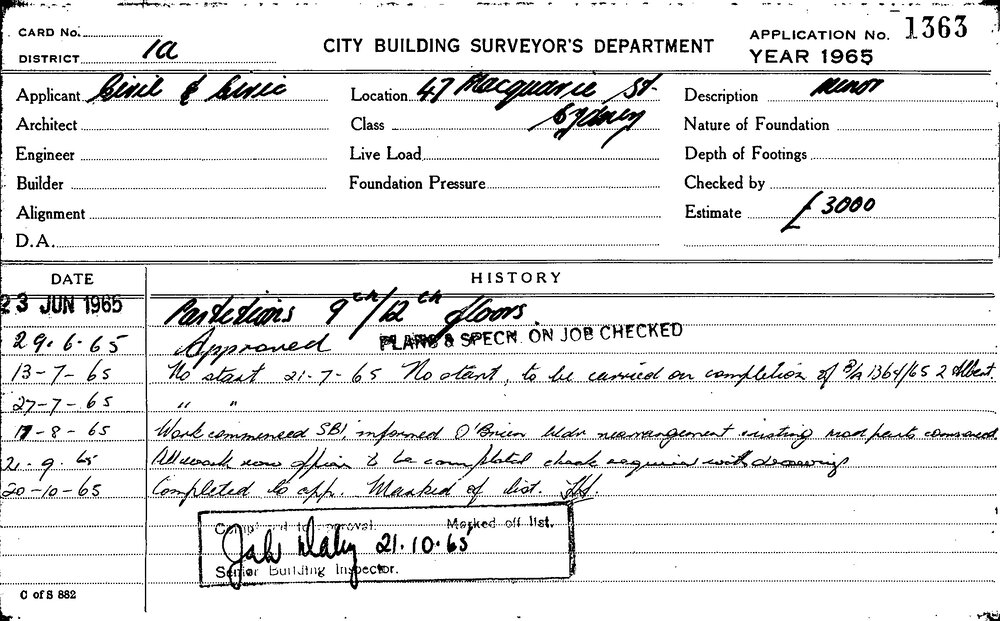 CARD No.
DISTRICT 1a
CITY BUILDING SURVEYOR'S DEPARTMENT
APPLICATION No. 1363
YEAR 1965
Applicant Civil & Civic
Location 47 Macquarie St. Sydney
Description Minor
Architect
Class
Nature of Foundation
Engineer
Live Load
Depth of Footings
Builder
Foundation Pressure
Checked by
Alignment
Estimate £3000
D.A.
DATE HISTORY
23 JUN 1965 Partitions 9th/12th floors
29.6.65 Approved PLANS & SPECN. ON JOB CHECKED
13-7-65 No start 21-7-65 No start, to be carried on completion of B/A 1364/65 2 Albert.
27-7-65 " "
17-8-65 Work commenced SBI, informed O'Brien bldr rearrangement existing
2.9.65 All work now to be completed check with drawing
20-10-65 Completed to app. Marked of list.
Completed to approval. Marked off list.
21.10.65
Senior Building Inspector.
C of S 882